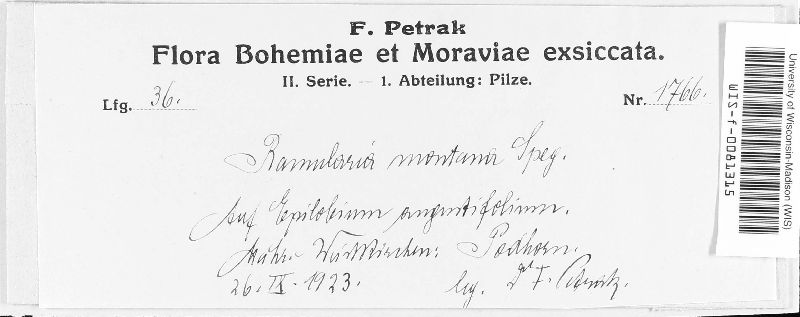 F. Petrak
Flora Bohemiae et Moraviae exsiccata.
II. Serie. — 1. Abteilung: Pilze.
Lfg. 36. Nr. 1766.
Ramularia montana Speg.
Auf Epilobium angustifolium.
Mähr. Weisskirchen: Podhorn.
26. IX. 1923. lg. Dr F. Petrak.
University of Wisconsin-Madison (WIS)
WIS-f-0081315